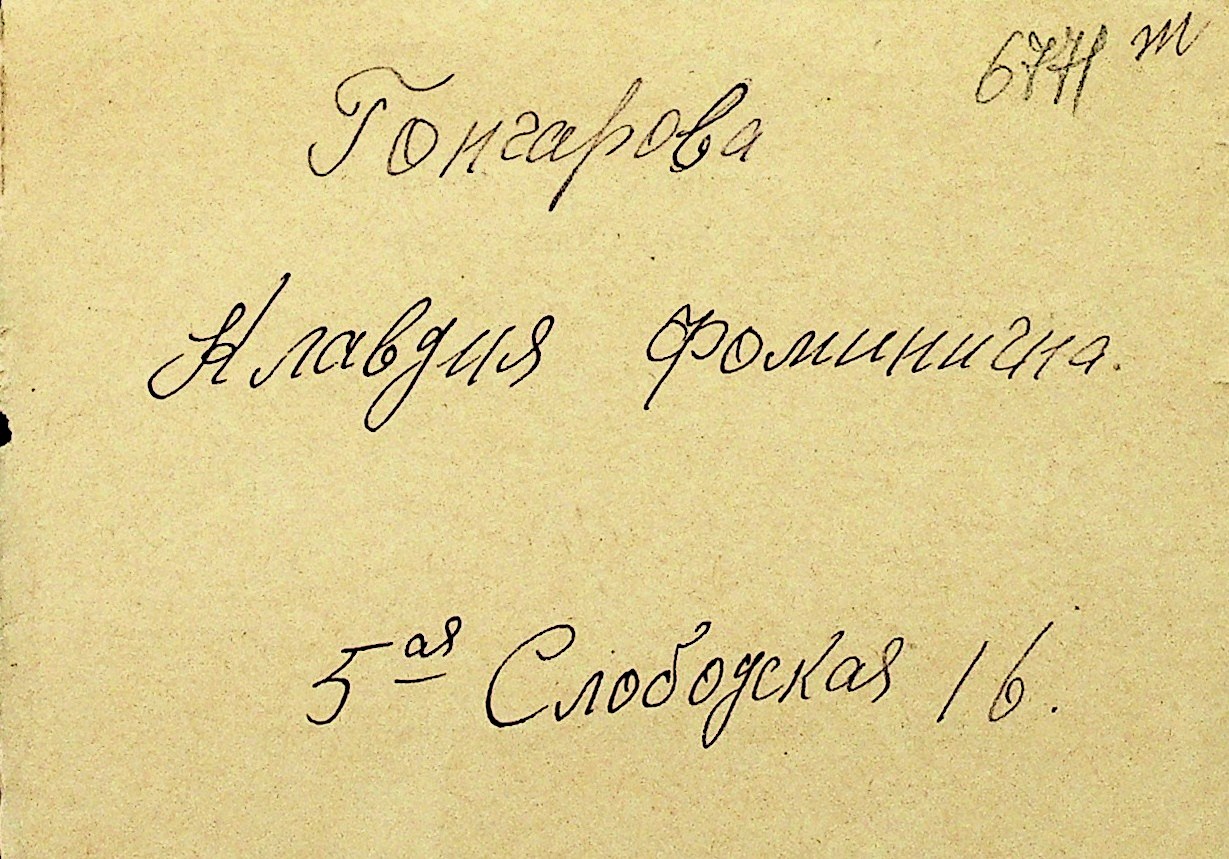 6771 т
Гончарова
Клавдия Фоминична.
5ая Слободская 16.